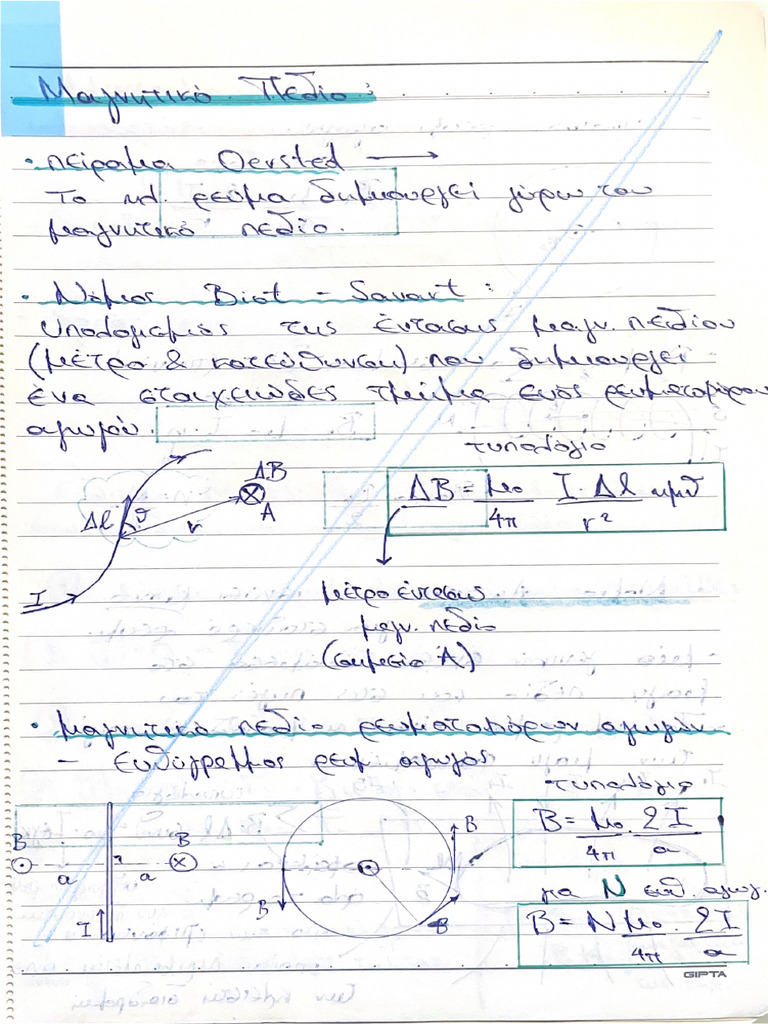 Μαγνητικό Πεδίο:
• πείραμα Oersted →
Το ηλ. ρεύμα δημιουργεί γύρω του
μαγνητικό πεδίο.
• Νόμος Biot - Savart:
Υπολογισμός της έντασης μαγν. πεδίου
(μέτρο & κατεύθυνση) που δημιουργεί
ένα στοιχειώδες τμήμα ενός ρευματοφόρου
αγωγού.
τυπολόγιο
ΔB = μ₀/4π I·Δl ημθ/r²
ΔB
A
Δl θ
r
I
μέτρο έντασης
μαγν. πεδίο
(σημείο A)
• μαγνητικό πεδίο ρευματοφόρων αγωγών
- Ευθύγραμμος ρευμ αγωγός
τυπολόγιο
B = μ₀/4π · 2I/α
B B B
α α
I
B B
για N ευθ. αγωγ.
B = N μ₀/4π · 2I/α
GIPTA